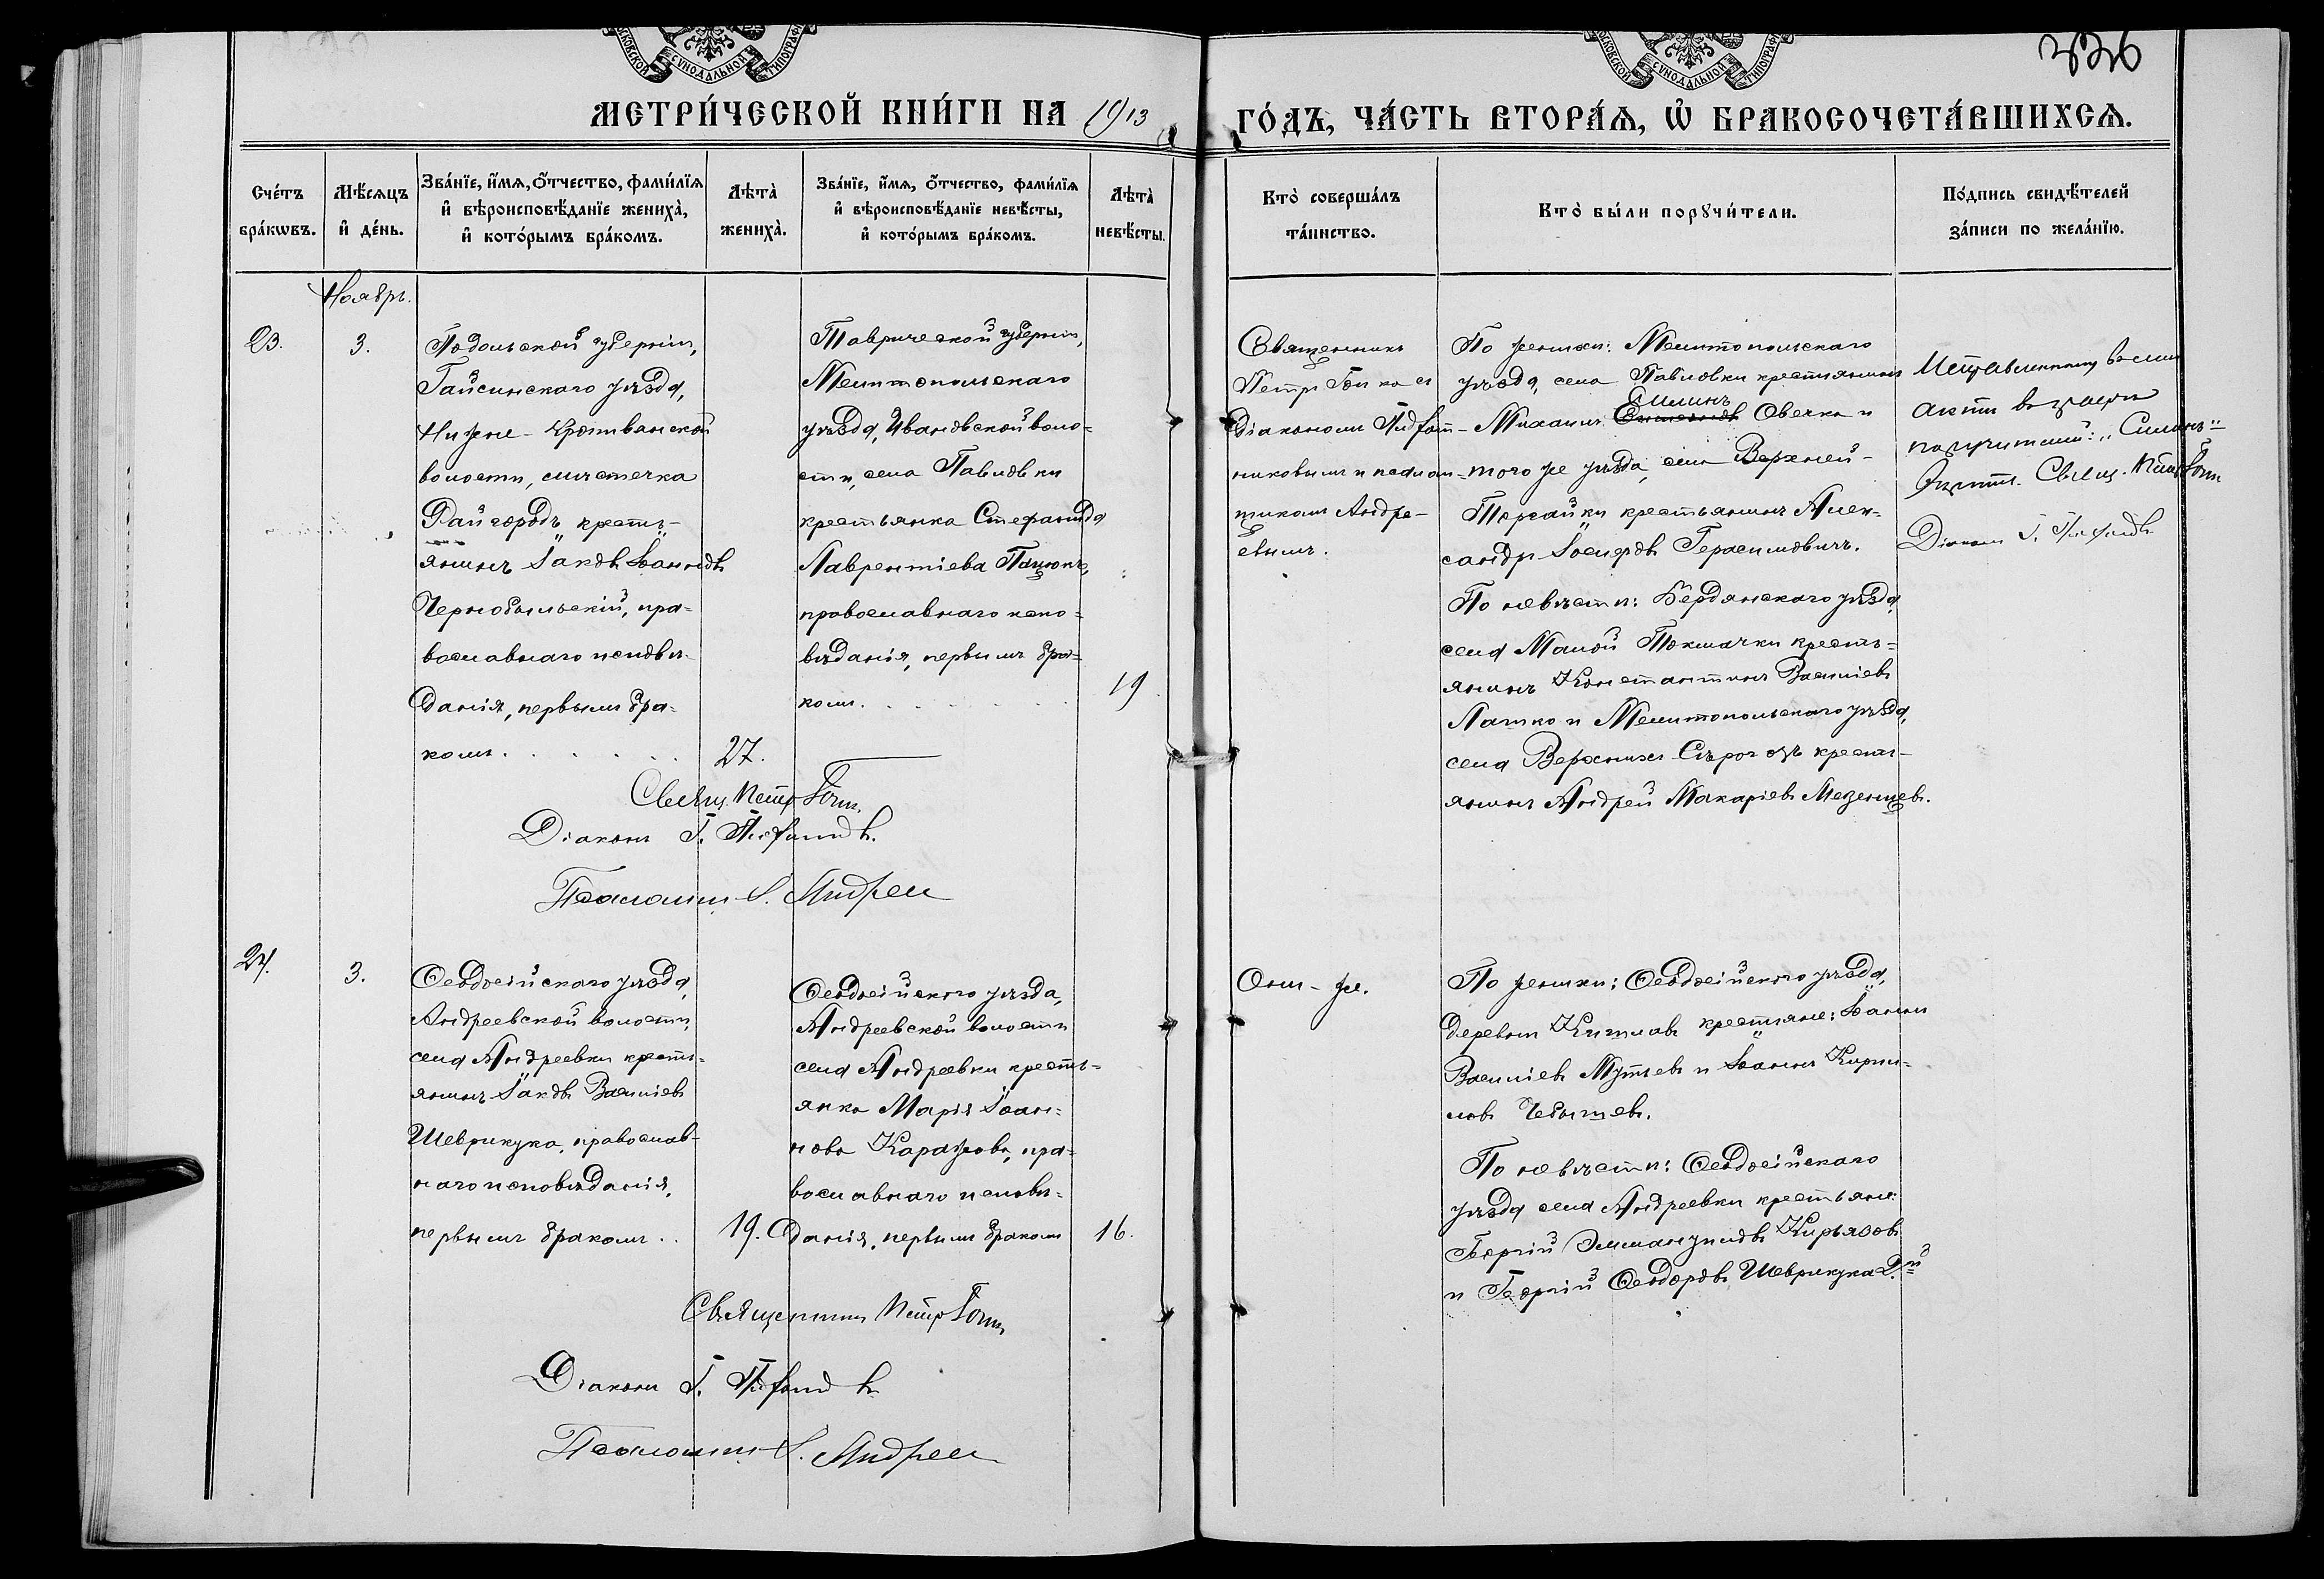 МОСКОВСКОЙ СѴНОДАЛЬНОЙ ТИПОГРАФІ
МОСКОВСКОЙ СѴНОДАЛЬНОЙ ТИПОГРАФІ
336
МЕТРИ́ЧЕСКОЙ КНИ́ГИ НА 1913
ГО́ДЪ, ЧА́СТЬ ВТОРА́Я, Ѡ БРАКОСОЧЕТА́ВШИХСЯ.
Сче́тъ бра́кѡвъ.
Мѣ́сяцъ и де́нь.
Зва́нїе, и́мя, ѻ҆́тчество, фами́лїя и вѣроисповѣ́данїе жениха̀, и кото́рымъ бра́комъ.
Лѣта̀ жениха̀.
Зва́нїе, и́мя, ѻ҆́тчество, фами́лїя и вѣроисповѣ́данїе невѣ́сты, и кото́рымъ бра́комъ.
Лѣта̀ невѣ́сты.
Кто̀ соверша́лъ та́инство.
Кто̀ бы́ли порꙋчи́тели.
По́дпись свидѣ́телей за́писи по жела́нїю.
Ноябрь.
23.
3.
Подольской губерніи,
Гайсинскаго уѣзда,
Нижне-Кропивянской
волости, мѣстечка
Райгородъ кресть-
янинъ Іаковъ Іоанновъ
Чернобыльскій, пра-
вославнаго исповѣ-
данія, первымъ бра-
комъ.
27.
Таврической губерніи,
Мелитопольскаго
уѣзда, Ивановской воло-
сти, села Павловки
крестьянка Стефанида
Лаврентіева Пацюкъ,
православнаго испо-
вѣданія, первымъ бра-
комъ.
19
Священникъ
Петръ
Діакономъ
никовымъ и псалом-
щикомъ Андре-
евымъ.
По женихѣ: Мелитопольскаго
уѣзда, села Павловки крестьянинъ
Симинъ
Михаилъ Овечко и
того же уѣзда, села Верхней-
Торгайки крестьянинъ Алек-
сандръ Іосифовъ Герасимовичъ.
По невѣстѣ: Бердянскаго уѣзда,
села Малой Токмачки кресть-
янинъ Константинъ Василіевъ
Латко и Мелитопольскаго уѣзда,
села Верхнихъ Сѣрогозъ кресть-
янинъ Андрей Макаріевъ Мезенцевъ.
Исправленному въ семъ
актѣ въ графѣ
поручителей: „Симинъ"
Свящ. Петръ
Діаконъ Г.
Свящ. Петръ
Діаконъ Г.
Псаломщ. Андрее
24.
3.
Ѳеодосійскаго уѣзда,
Андреевской волости,
села Андреевки кресть-
янинъ Іаковъ Василіевъ
Шеврикука, православ-
наго исповѣданія,
первымъ бракомъ.
19.
Ѳеодосійскаго уѣзда,
Андреевской волости
села Андреевки кресть-
янка Марія Іоан-
нова Каражова, пра-
вославнаго исповѣ-
данія, первымъ бракомъ
16.
Они-же.
По женихѣ: Ѳеодосійскаго уѣзда,
деревни Кишлавъ крестьяне: Іоаннъ
Василіевъ Мутьевъ и Іоаннъ Кирил-
ловъ Чебышевъ.
По невѣстѣ: Ѳеодосійскаго
уѣзда села Андреевки крестьяне:
Георгій Эммануиловъ Кирьязовъ
и Георгій Ѳеодоровъ Шеврикука 2й
Священникъ Петръ
Діаконъ Г.
Псаломщ. Андрее